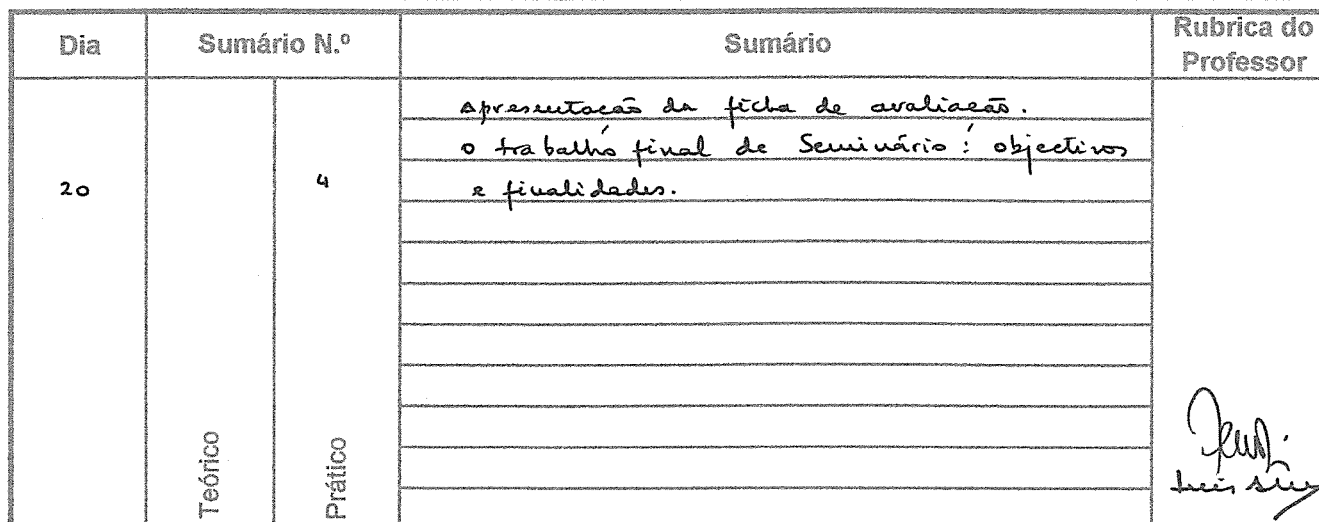 Dia
Sumário N.º
Sumário
Rubrica do
Professor
Apresentação da ficha de avaliação.
O trabalho final de Seminário: objectivos
20
4
e finalidades.
Teórico
Prático